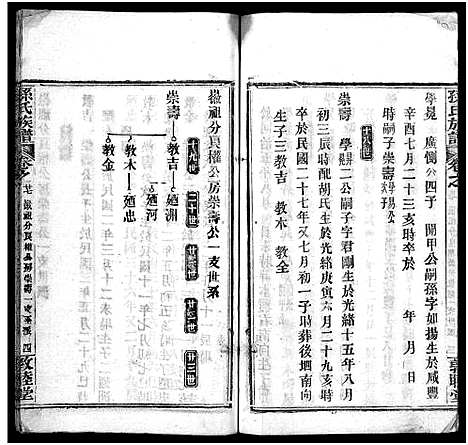 孫氏族譜
學冕 廣慟公四子 開甲公嗣孫字如揚生於咸豐
辛酉七月二十三亥時卒於 年 月 日
時嗣子崇壽
十九世
崇壽 學 二公嗣子字君剛生於光緒十五年八月
初三辰時配胡氏生於光緒庚寅六月二十九亥時
卒於民國二十又七月初一子時葬後塘南向
生子三教吉 教木 教全
嶽祖分長權公房崇壽公一支世系
十九世 二十世 廿一世 廿二世 廿三世
崇壽 教吉 廼洲
廼河
教木 廼忠
教金
孫氏族譜 卷之 廿 嶽祖分長權公房崇壽一支系派 四 敦睦堂